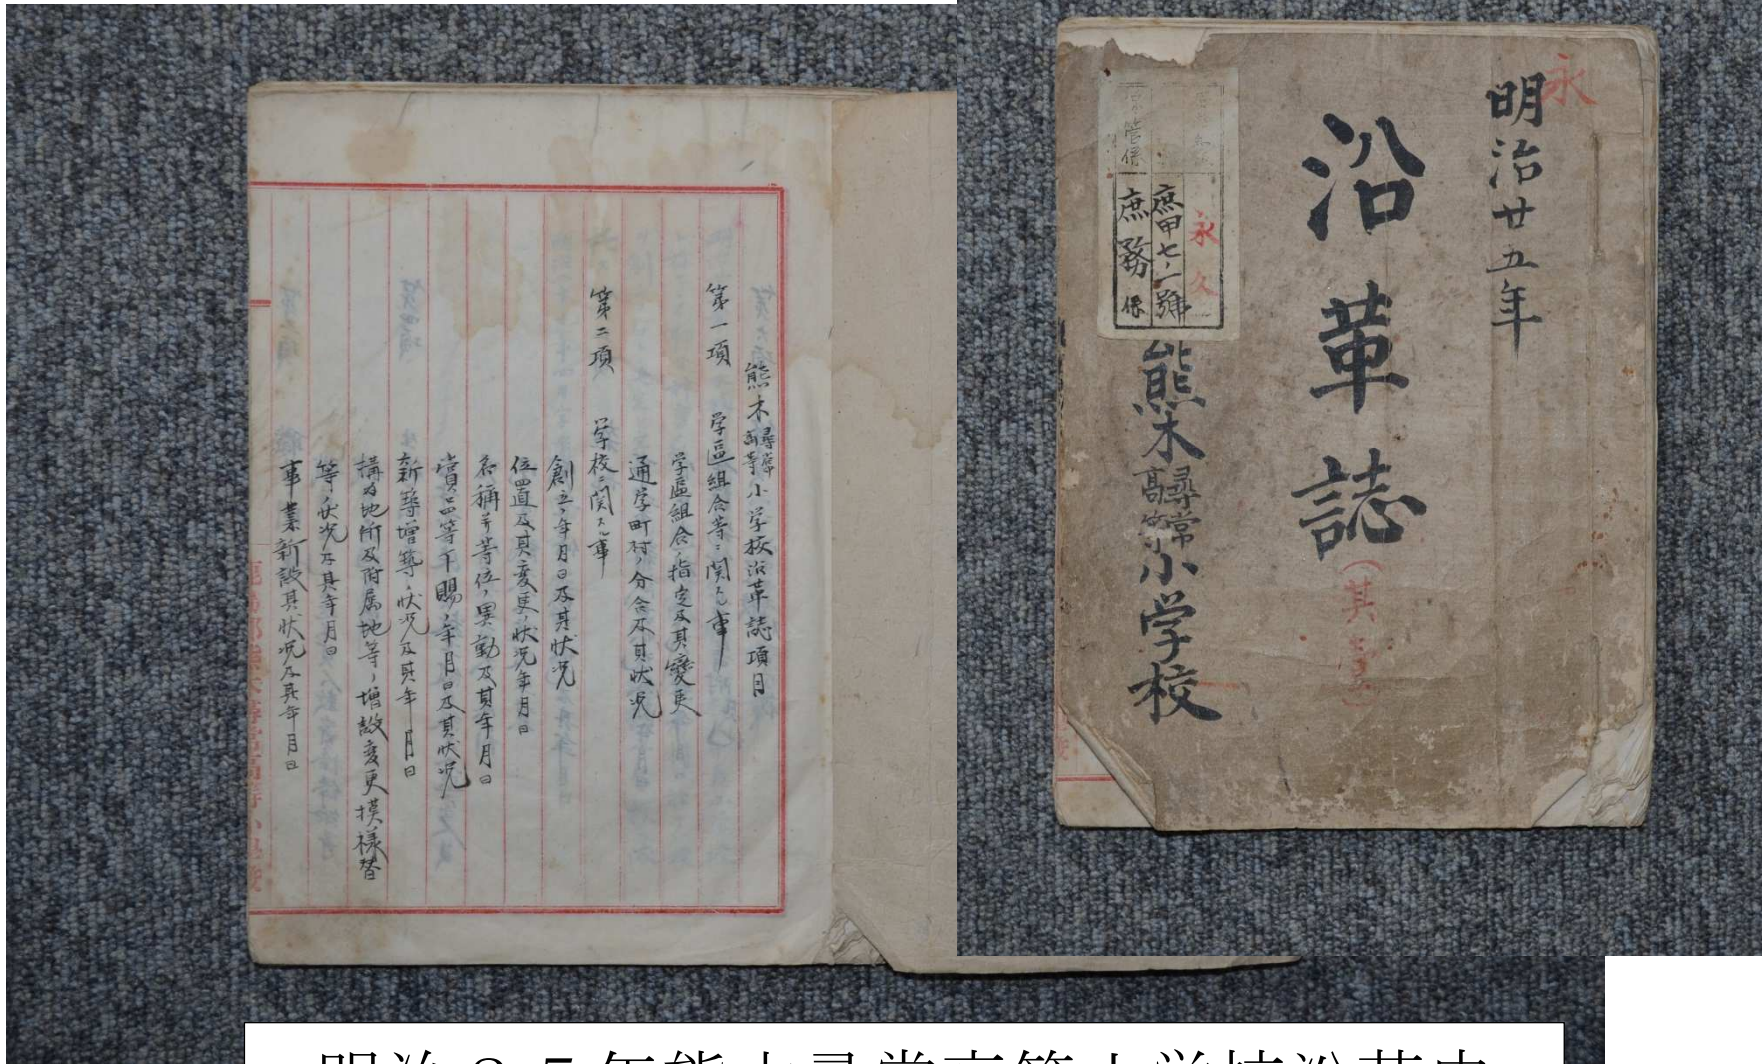 永
明治廿五年
沿革誌
(其壹)
熊木尋常高等小学校
永久
庶甲七ノ一號
庶務係
熊木尋常高等小学校沿革誌項目
第一項 学區組合等ニ関スル事
学區組合ノ指定及其変更
通学町村ノ分合及其状況
第二項 学校ニ関スル事
創立ノ年月日及其状況
位置及其変更ノ状況年月日
名称并等位ノ異動及其年月日
賞品等下賜ノ年月日及其状況
新築増築ノ状況及其年月日
構内地所及附属地等ノ増減変更模様替
等ノ状況及其年月日
事業新設其状況及其年月日